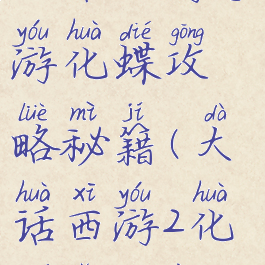 yóu huà dié gōng
游化蝶攻
lüè mì jí dà
略秘籍(大
huà xī yóu huà
话西游2化